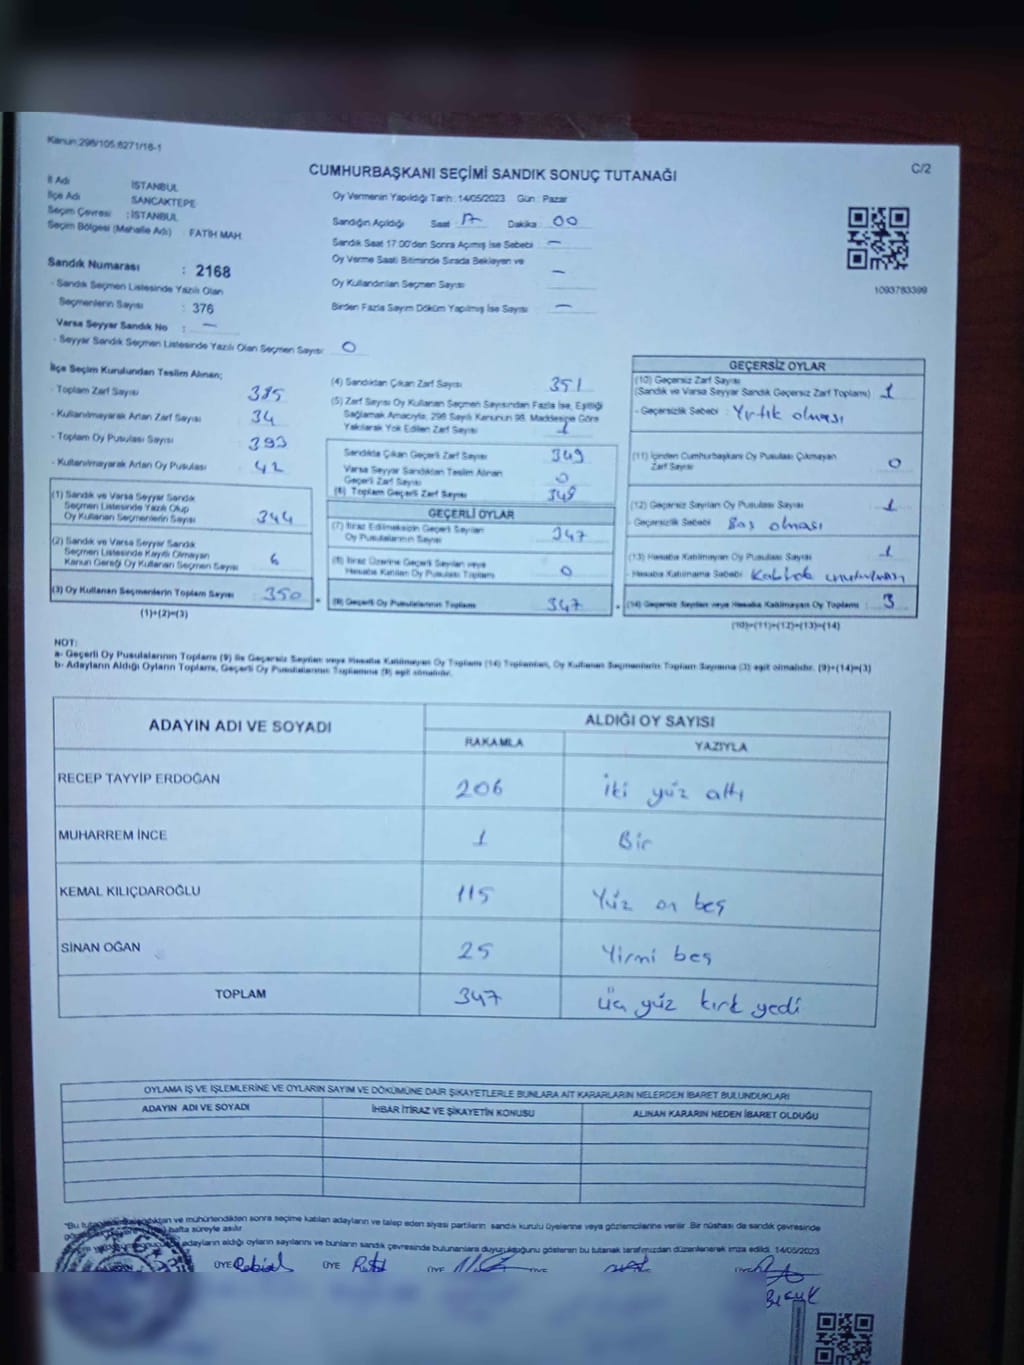 Kanun:298/105,6271/18-1
C/2
CUMHURBAŞKANI SEÇİMİ SANDIK SONUÇ TUTANAĞI
İl Adı İSTANBUL
İlçe Adı SANCAKTEPE
Seçim Çevresi : İSTANBUL
Seçim Bölgesi (Mahalle Adı) : FATİH MAH.
Sandık Numarası : 2168
- Sandık Seçmen Listesinde Yazılı Olan
Seçmenlerin Sayısı : 376
Varsa Seyyar Sandık No : —
- Seyyar Sandık Seçmen Listesinde Yazılı Olan Seçmen Sayısı: 0
Oy Vermenin Yapıldığı Tarih: 14/05/2023 Gün: Pazar
Sandığın Açıldığı Saat : 17 Dakika : 00
Sandık Saat 17.00'den Sonra Açımış İse Sebebi : —
Oy Verme Saati Bitiminde Sırada Bekleyen ve
Oy Kullandırılan Seçmen Sayısı —
Birden Fazla Sayım Döküm Yapılmış İse Sayısı : —
1093783399
İlçe Seçim Kurulundan Teslim Alınan;
- Toplam Zarf Sayısı 385
- Kullanılmayarak Artan Zarf Sayısı 34
- Toplam Oy Pusulası Sayısı 393
- Kullanılmayarak Artan Oy Pusulası 42
(1) Sandık ve Varsa Seyyar Sandık
Seçmen Listesinde Yazılı Olup
Oy Kullanan Seçmenlerin Sayısı 344
(2) Sandık ve Varsa Seyyar Sandık
Seçmen Listesinde Kayıtlı Olmayan
Kanun Gereği Oy Kullanan Seçmen Sayısı 6
(3) Oy Kullanan Seçmenlerin Toplam Sayısı 350
(1)+(2)=(3)
(4) Sandıktan Çıkan Zarf Sayısı 351
(5) Zarf Sayısı Oy Kullanan Seçmen Sayısından Fazla İse, Eşitliği
Sağlamak Amacıyla, 298 Sayılı Kanunun 98. Maddesine Göre
Yakılarak Yok Edilen Zarf Sayısı 1
Sandıkta Çıkan Geçerli Zarf Sayısı 349
Varsa Seyyar Sandıktan Teslim Alınan
Geçerli Zarf Sayısı 0
(6) Toplam Geçerli Zarf Sayısı 349
GEÇERLİ OYLAR
(7) İtiraz Edilmeksizin Geçerli Sayılan
Oy Pusulalarının Sayısı 347
(8) İtiraz Üzerine Geçerli Sayılan veya
Hesaba Katılan Oy Pusulası Toplamı 0
(9) Geçerli Oy Pusulalarının Toplamı 347
GEÇERSİZ OYLAR
(10) Geçersiz Zarf Sayısı
(Sandık ve Varsa Seyyar Sandık Geçersiz Zarf Toplamı) 1
- Geçersizlik Sebebi : Yırtık olması
(11) İçinden Cumhurbaşkanı Oy Pusulası Çıkmayan
Zarf Sayısı 0
(12) Geçersiz Sayılan Oy Pusulası Sayısı 1
- Geçersizlik Sebebi : Boş olması
(13) Hesaba Katılmayan Oy Pusulası Sayısı 1
- Hesaba Katılmama Sebebi
(14) Geçersiz Sayılan veya Hesaba Katılmayan Oy Toplamı : 3
(10)+(11)+(12)+(13)=(14)
NOT:
a- Geçerli Oy Pusulalarının Toplamı (9) ile Geçersiz Sayılan veya Hesaba Katılmayan Oy Toplamı (14) Toplamları, Oy Kullanan Seçmenlerin Toplam Sayısına (3) eşit olmalıdır. (9)+(14)=(3)
b- Adayların Aldığı Oyların Toplamı, Geçerli Oy Pusulalarının Toplamına (9) eşit olmalıdır.
ADAYIN ADI VE SOYADI ALDIĞI OY SAYISI
RAKAMLA YAZIYLA
RECEP TAYYİP ERDOĞAN 206 İki yüz altı
MUHARREM İNCE 1 Bir
KEMAL KILIÇDAROĞLU 115 Yüz on beş
SİNAN OĞAN 25 Yirmi beş
TOPLAM 347 Üç yüz kırk yedi
OYLAMA İŞ VE İŞLEMLERİNE VE OYLARIN SAYIM VE DÖKÜMÜNE DAİR ŞİKAYETLERLE BUNLARA AİT KARARLARIN NELERDEN İBARET BULUNDUKLARI
ADAYIN ADI VE SOYADI İHBAR İTİRAZ VE ŞİKAYETİN KONUSU ALINAN KARARIN NEDEN İBARET OLDUĞU
"Bu ve mühürlendikten sonra seçime katılan adayların ve talep eden siyasi partilerin sandık kurulu üyelerine veya gözlemcilerine verilir. Bir nüshası da sandık çevresinde
hafta süreyle asılır.
adayların aldığı oyların sayılarını ve bunların sandık çevresinde bulunanlara duyurulduğunu gösteren bu tutanak tarafımızdan düzenlenerek imza edildi. 14/05/2023
ÜYE ÜYE ÜYE ÜYE